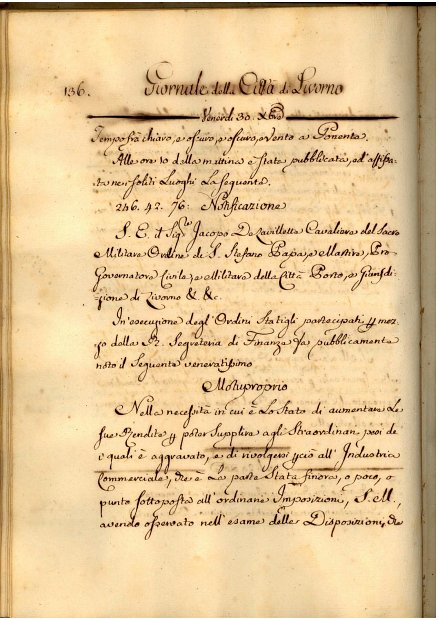 136. Giornale della Città di Livorno
Venerdì 30. Xbre
Tempo frà chiaro, e oscuro, e oscuro, e vento a Ponente.
Alle ore 10 della mattina è stata pubblicata, ed affissa
ta nei soliti Luoghi La seguente.
246. 42. 76: Notificazione
S. E. il Sigre Jacopo De Lavillette Cavaliere del Sacro
Militare Ordine di S. Stefano Papa, e Martire, Pro
Governatore Civile, e Militare della Città Porto, e Giurisdi
zione di Livorno & &c.
In esecuzione degl'Ordini Statigli partecipati p mez
zo della R. Segreteria di Finanze fa pubblicamente
noto il Seguente veneratissimo
Motuproprio
Nella necessità in cui è Lo Stato di aumentare Le
sue Rendite p poter Supplire agli Straordinari pesi de
quali è aggravato, e di rivolgersi pciò all' Industria
Commerciale, che è La parte Stata finora, o poco, o
punto sottoposta all'ordinarie Imposizioni, S. M.,
avendo osservato nell'esame delle Disposizioni, che